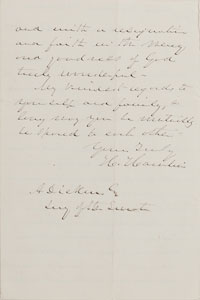 and with a resignation
and faith in the mercy
and goodness of God
truly wonderful -
My kindest regards to
yourself and family, &
long may you be mutually
be spared to each other.
Yours Truly
H. Hamlin